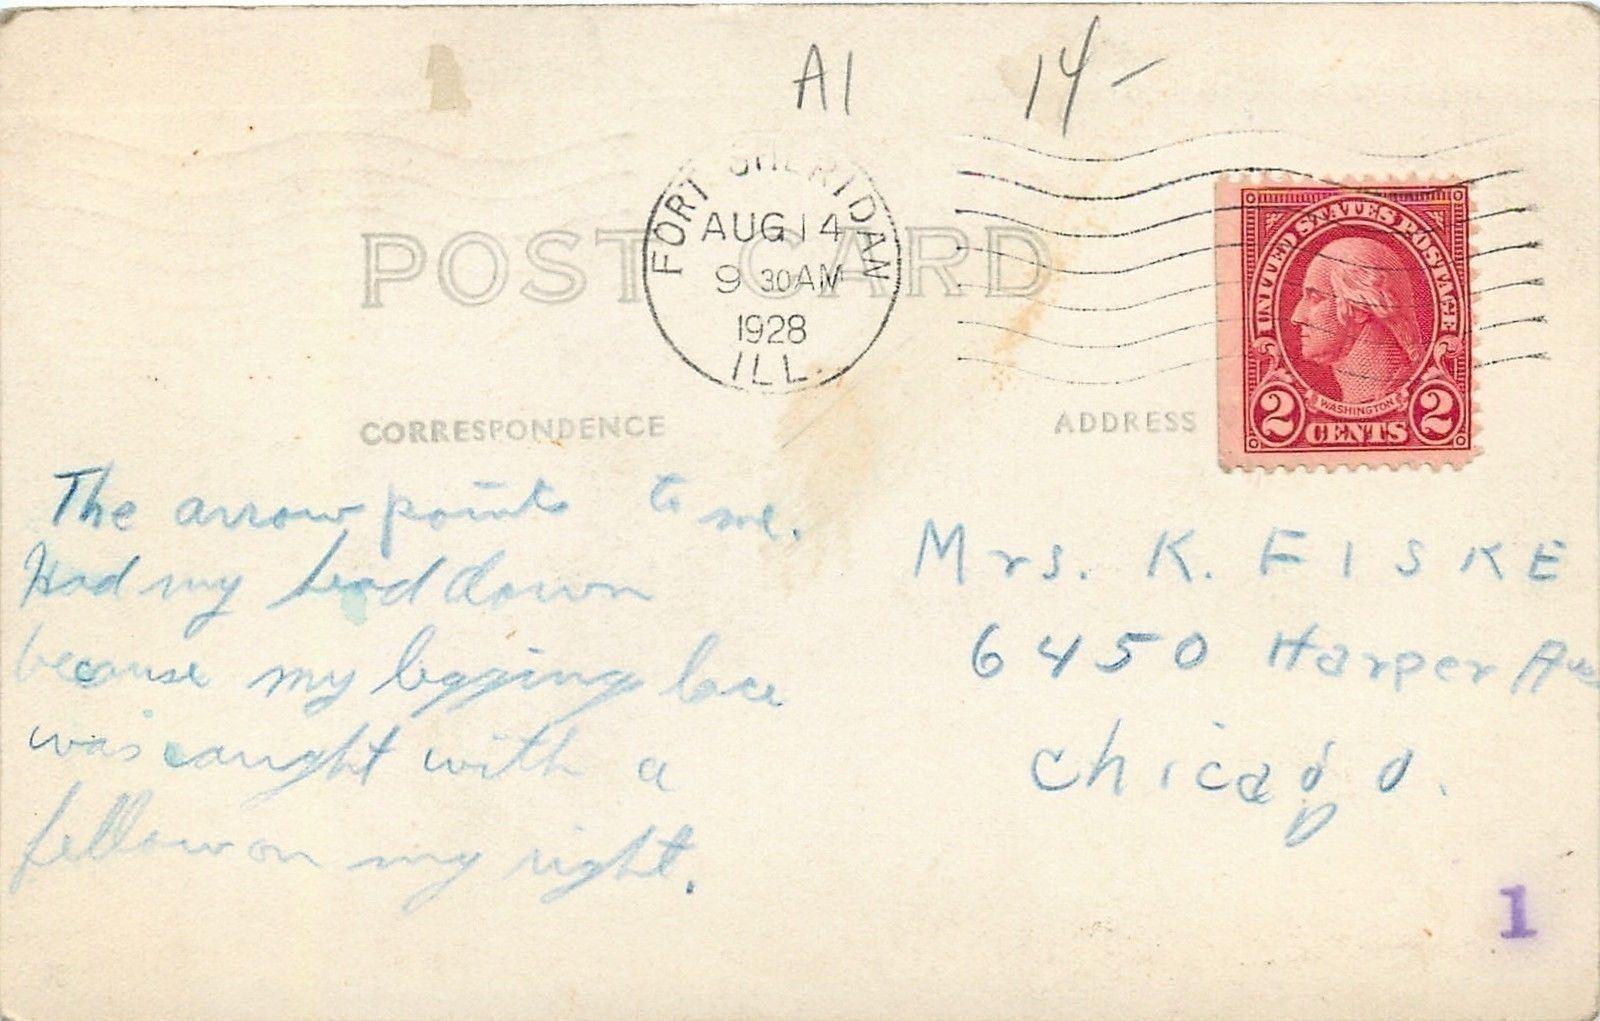 A1 14-
FORT SHERIDAN
AUG 14
9 30 AM
1928
ILL.
POST CARD
UNITED STATES POSTAGE
WASHINGTON
2 CENTS 2
CORRESPONDENCE
ADDRESS
The arrow points to me.
Had my head down
because my legging lace
was caught with a
fellow on my right.
Mrs. K. FISKE
6450 Harper Ave
Chicago.
1